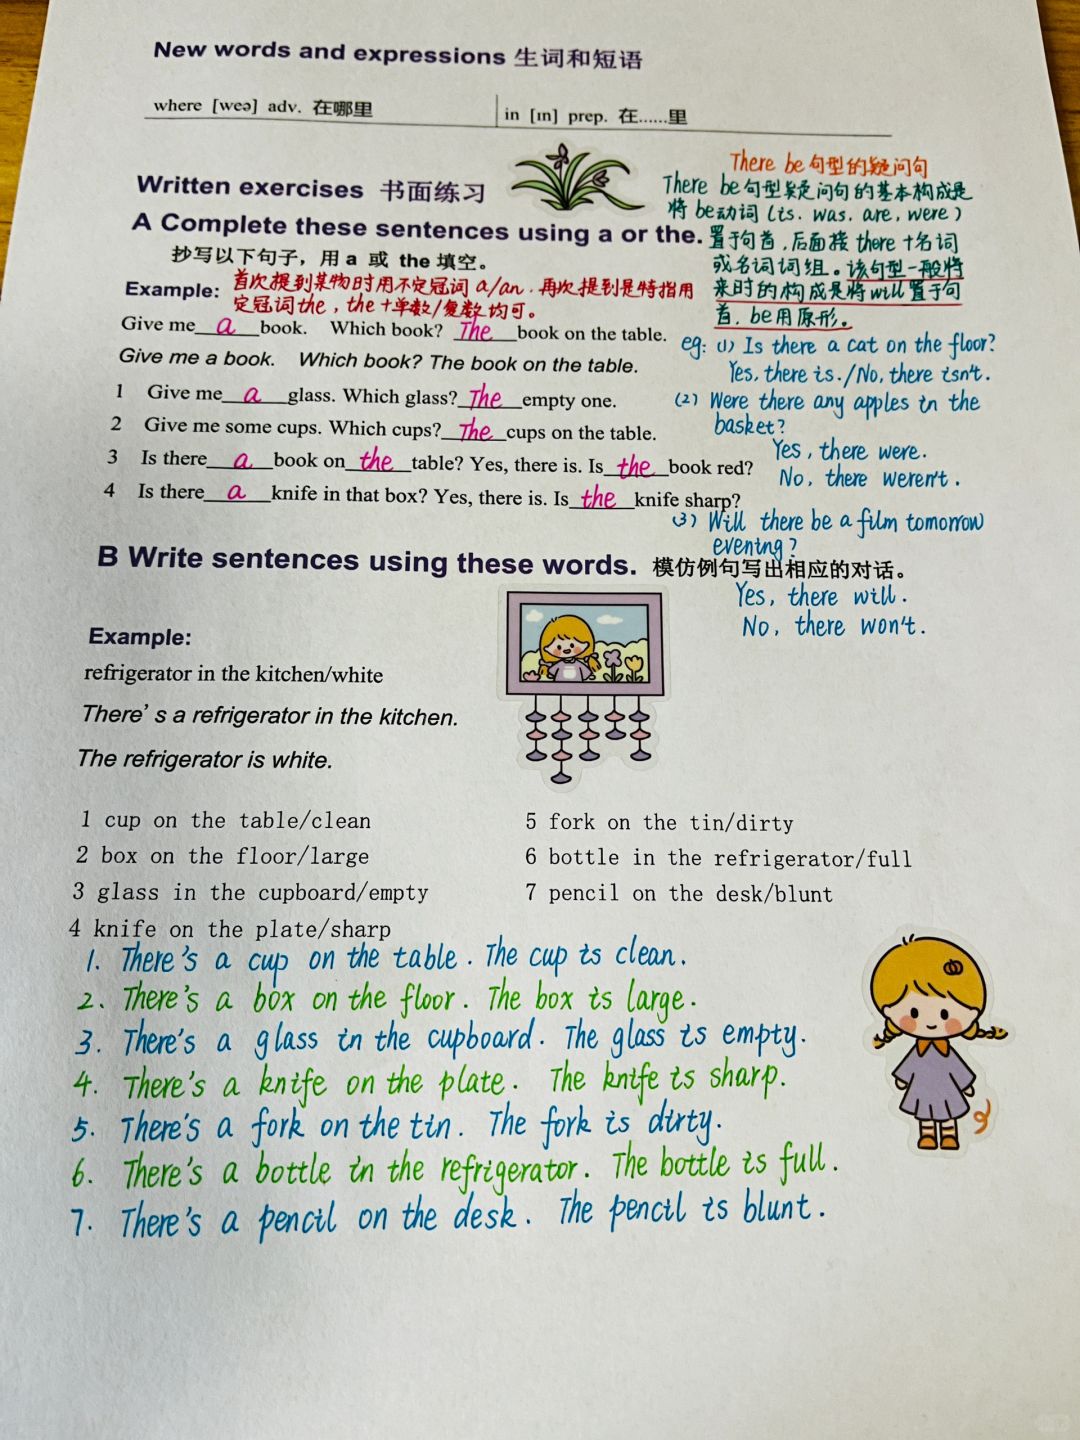 New words and expressions 生词和短语
where [weə] adv. 在哪里
in [ɪn] prep. 在……里
Written exercises 书面练习
A Complete these sentences using a or the.
抄写以下句子，用 a 或 the 填空。
Example: 首次提到某物时用不定冠词 a/an．再次提到是特指用
定冠词the，the＋单数/复数均可。
Give me a book. Which book? The book on the table.
Give me a book. Which book? The book on the table.
1 Give me a glass. Which glass? The empty one.
2 Give me some cups. Which cups? The cups on the table.
3 Is there a book on the table? Yes, there is. Is the book red?
4 Is there a knife in that box? Yes, there is. Is the knife sharp?
There be句型的疑问句
There be句型疑问句的基本构成是
将be动词（is. was. are, were）
置于句首，后面接there＋名词
或名词词组。该句型一般将
来时的构成是将will置于句
首，be用原形。
eg: (1) Is there a cat on the floor?
Yes, there is./No, there isn't.
(2) Were there any apples in the
basket?
Yes, there were.
No, there weren't.
(3) Will there be a film tomorrow
evening?
Yes, there will.
No, there won't.
B Write sentences using these words. 模仿例句写出相应的对话。
Example:
refrigerator in the kitchen/white
There's a refrigerator in the kitchen.
The refrigerator is white.
1 cup on the table/clean
2 box on the floor/large
3 glass in the cupboard/empty
4 knife on the plate/sharp
5 fork on the tin/dirty
6 bottle in the refrigerator/full
7 pencil on the desk/blunt
1. There's a cup on the table. The cup is clean.
2. There's a box on the floor. The box is large.
3. There's a glass in the cupboard. The glass is empty.
4. There's a knife on the plate. The knife is sharp.
5. There's a fork on the tin. The fork is dirty.
6. There's a bottle in the refrigerator. The bottle is full.
7. There's a pencil on the desk. The pencil is blunt.